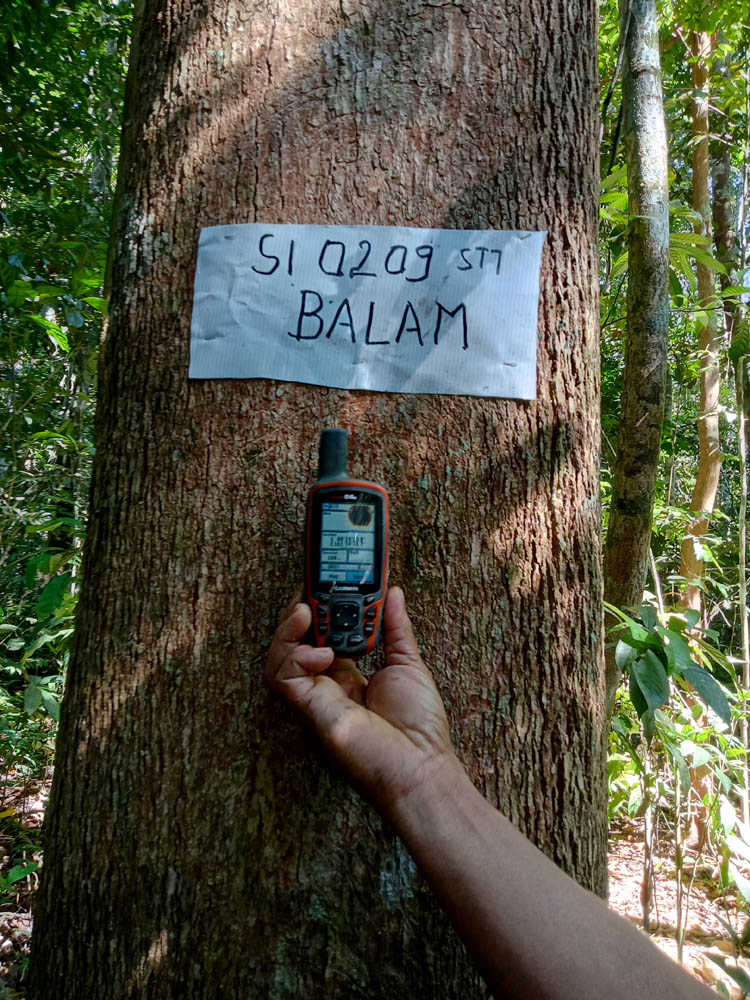 SI 0209 ST7
BALAM
GARMIN